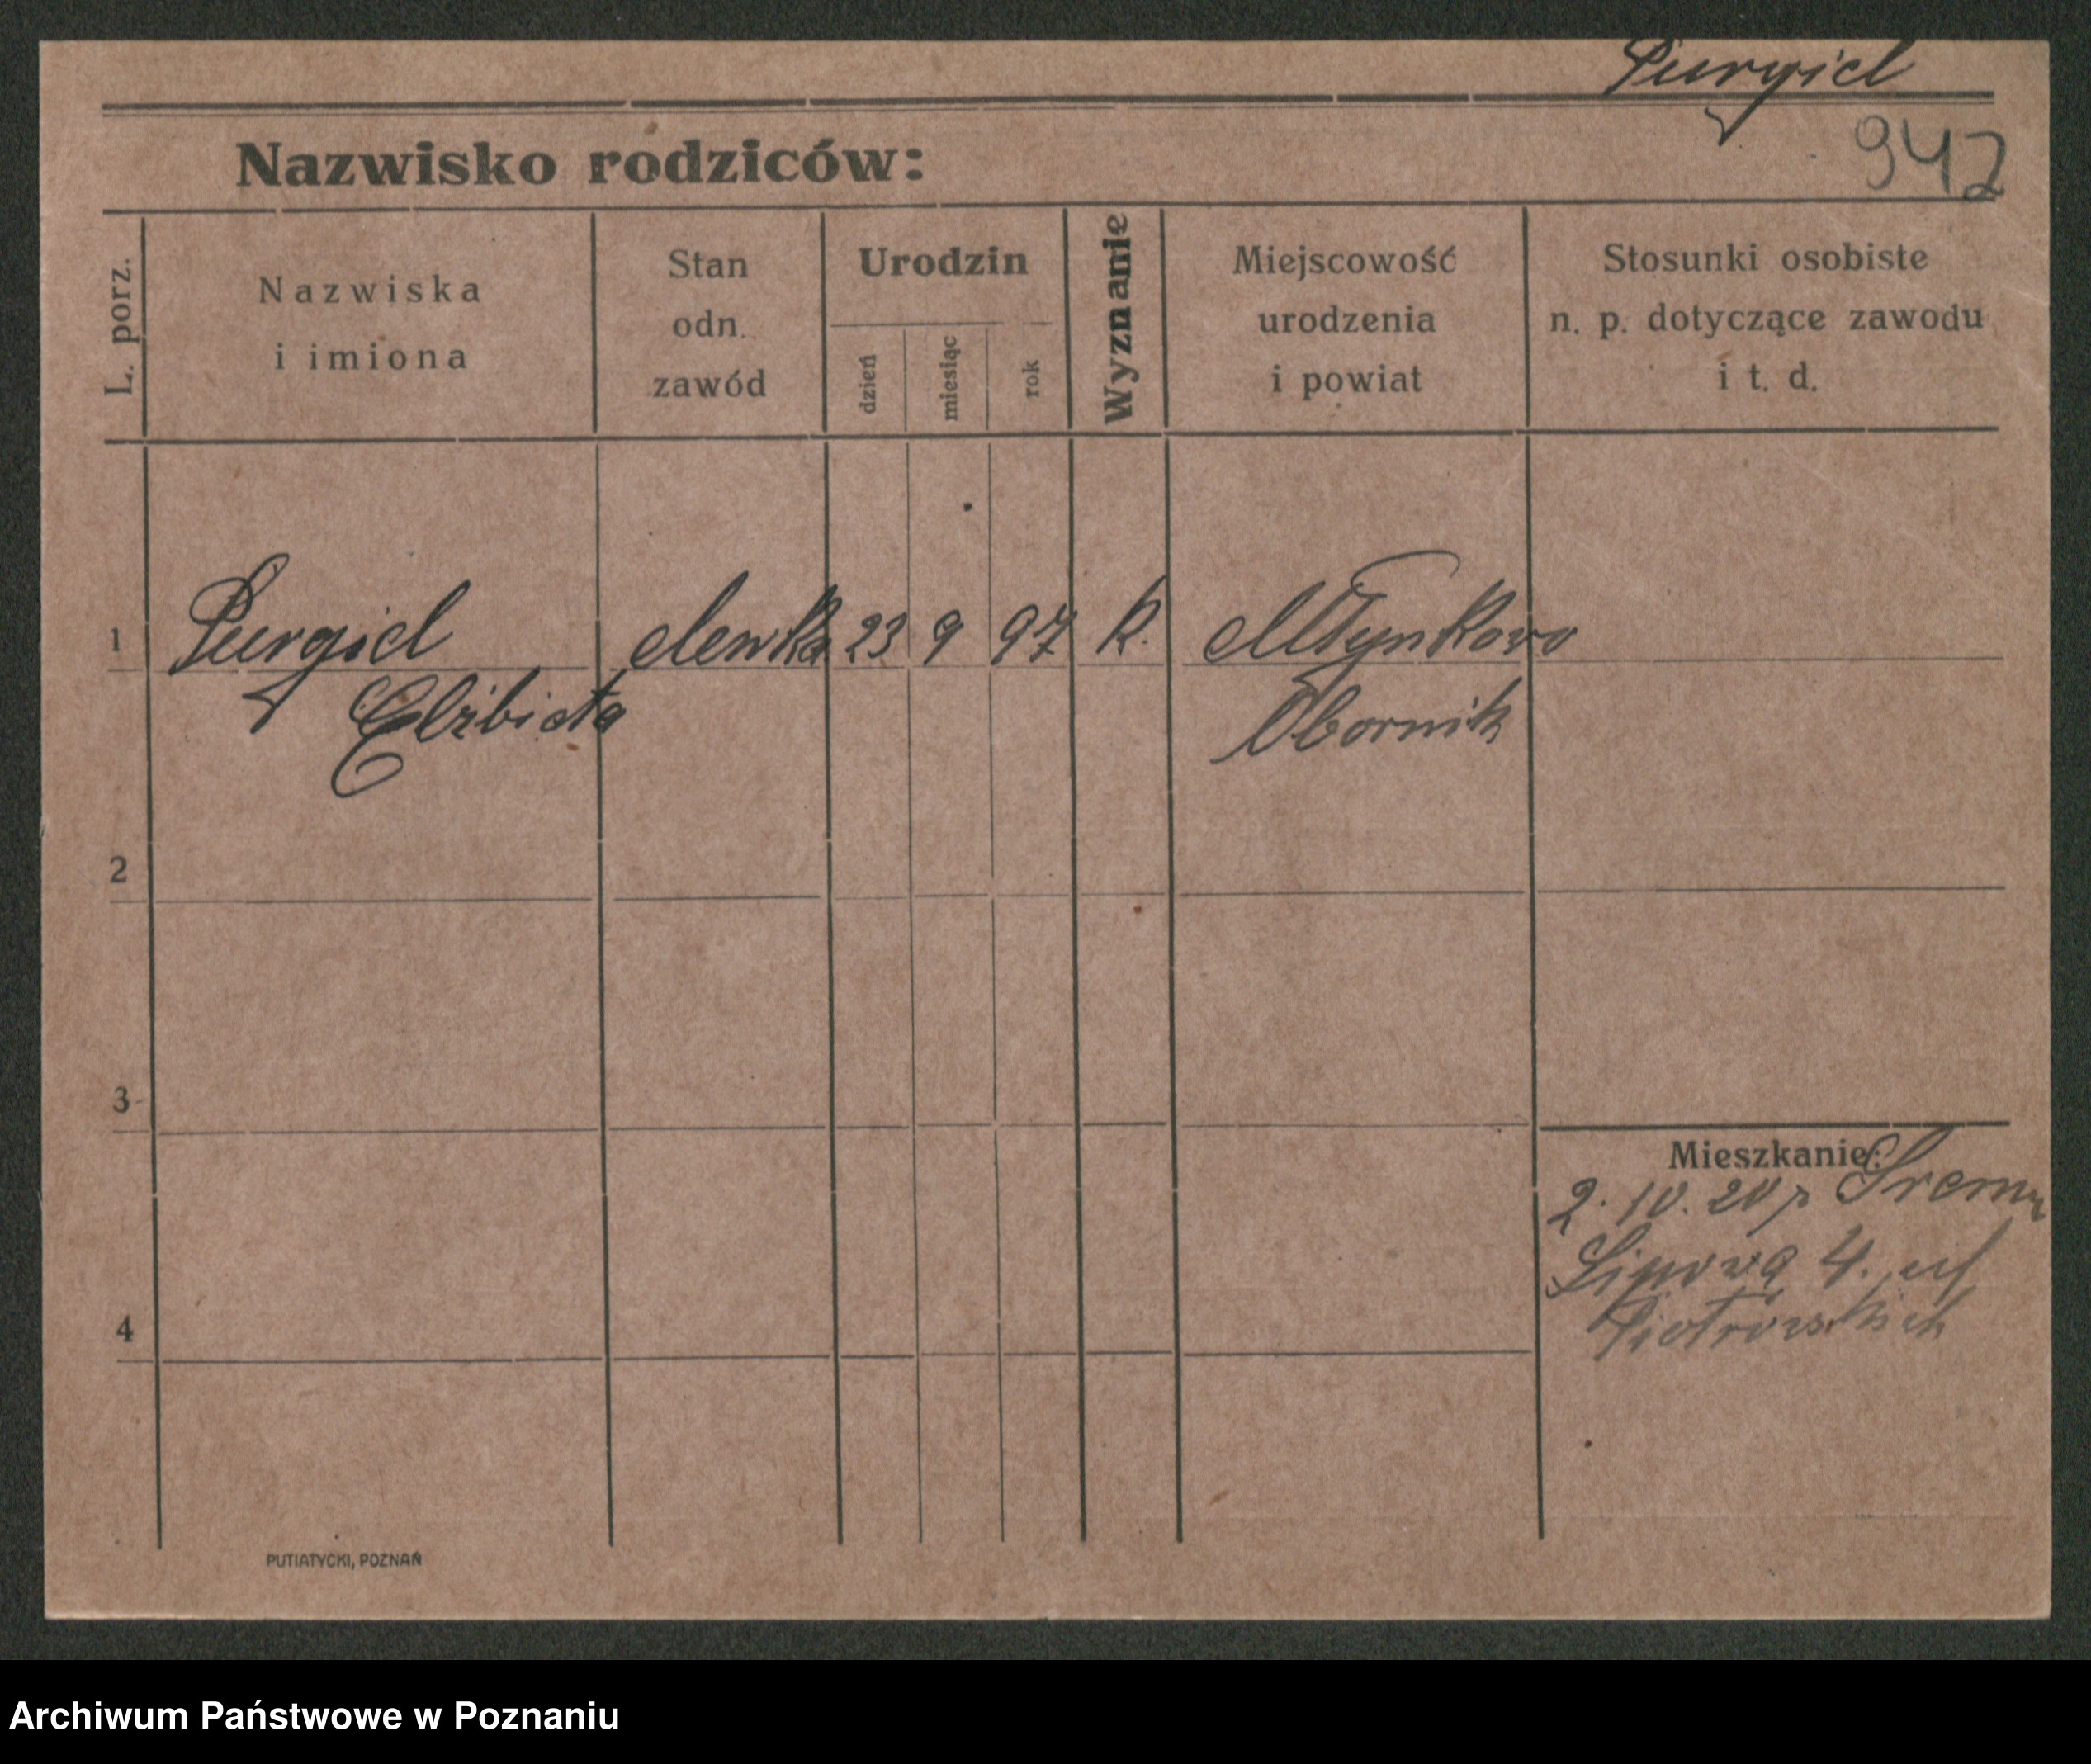 Purgiel
942
Nazwisko rodziców:
L. porz.
Nazwiska
i imiona
Stan
odn.
zawód
Urodzin
dzień
miesiąc
rok
Wyznanie
Miejscowość
urodzenia
i powiat
Stosunki osobiste
n. p. dotyczące zawodu
i t. d.
1
Purgiel 23 9 97 k. Młynkowo
Elżbieta Obornik
2
3
Mieszkanie:
2. 10. 20 Śrem
Lipowa 4.
Piotrowskich
4
PUTIATYCKI, POZNAŃ
Archiwum Państwowe w Poznaniu